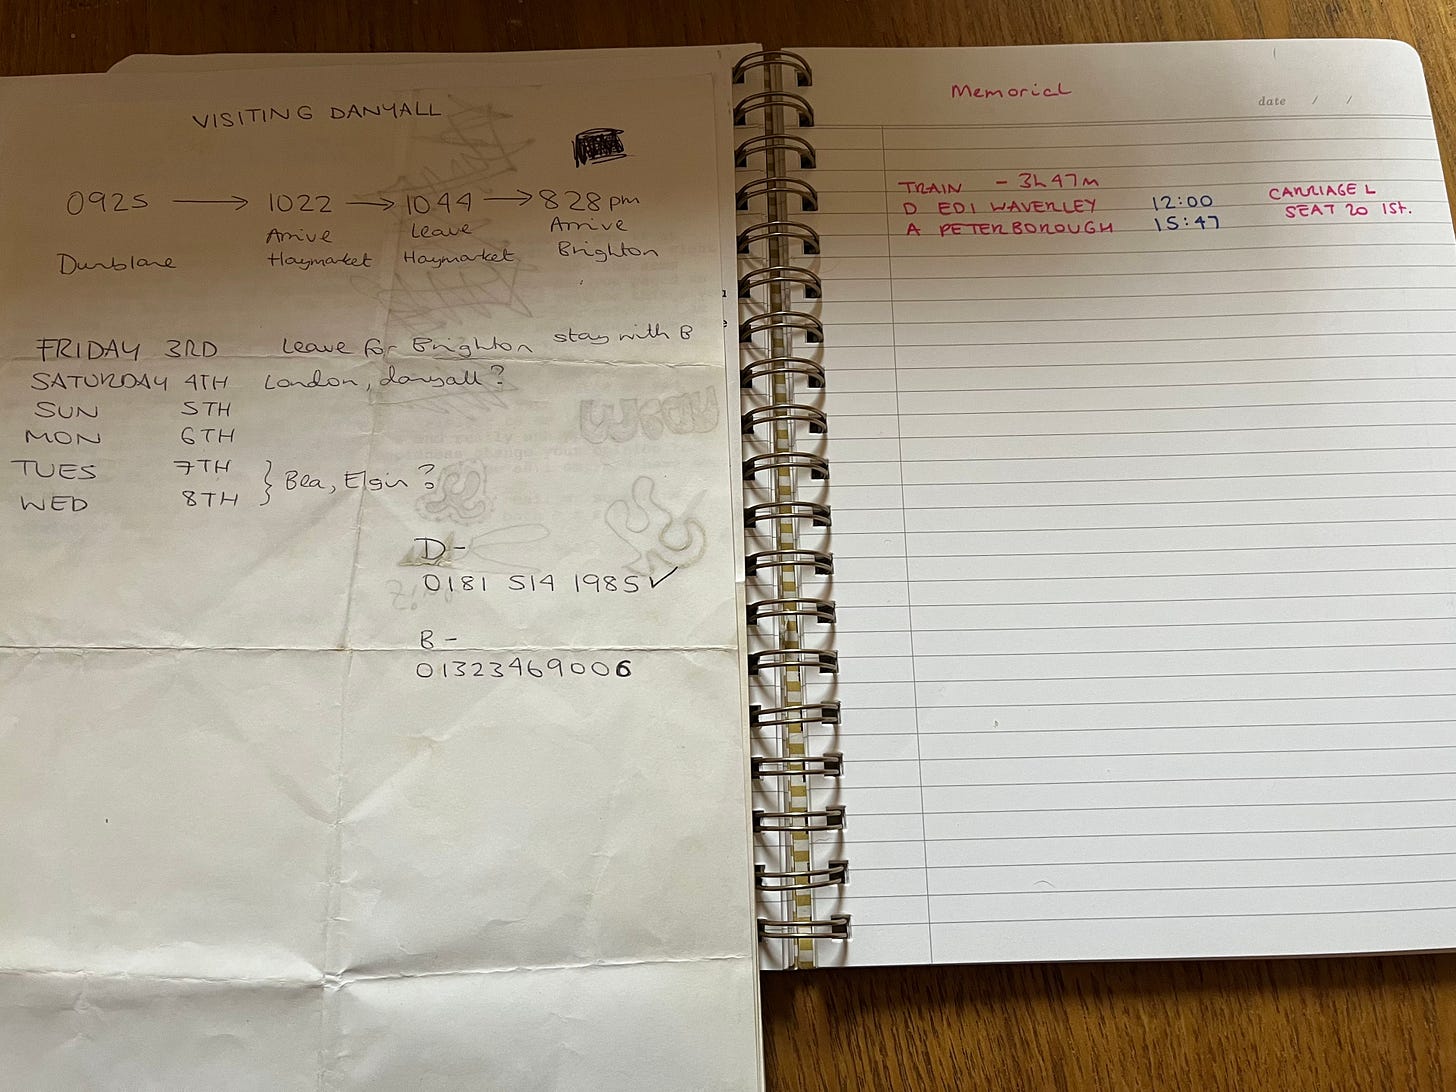 VISITING DANYALL
0925 → 1022 → 1044 → 828 pm
Arrive Leave Arrive
Dunblane Haymarket Haymarket Brighton
FRIDAY 3RD Leave for Brighton stay with B
SATURDAY 4TH London, danyall?
SUN 5TH
MON 6TH
TUES 7TH } Bea, Elgin?
WED 8TH
D -
0181 514 1985 ✓
B -
01323469006
Memorial
date / /
TRAIN - 3h 47m
D EDI WAVERLEY 12:00 CARRIAGE L
A PETERBOROUGH 15:47 SEAT 20 1ST.